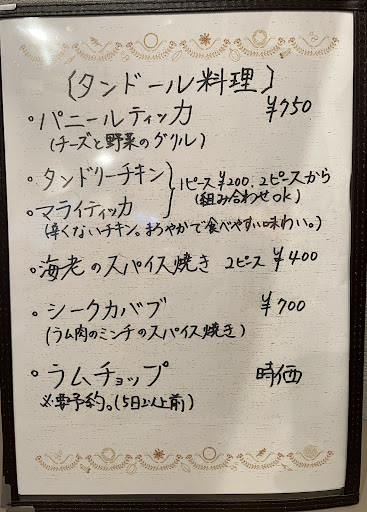 〔タンドール料理〕
・パニールティッカ ¥750
(チーズと野菜のグリル)
・タンドリーチキン
・マライティッカ
1ピース¥200. 2ピースから
(組み合わせok)
(辛くないチキン。まろやかで食べやすい味わい。)
・海老のスパイス焼き 2ピース ¥400
・シークカバブ ¥700
(ラム肉のミンチのスパイス焼き)
・ラムチョップ 時価
※要予約。(5日以上前)